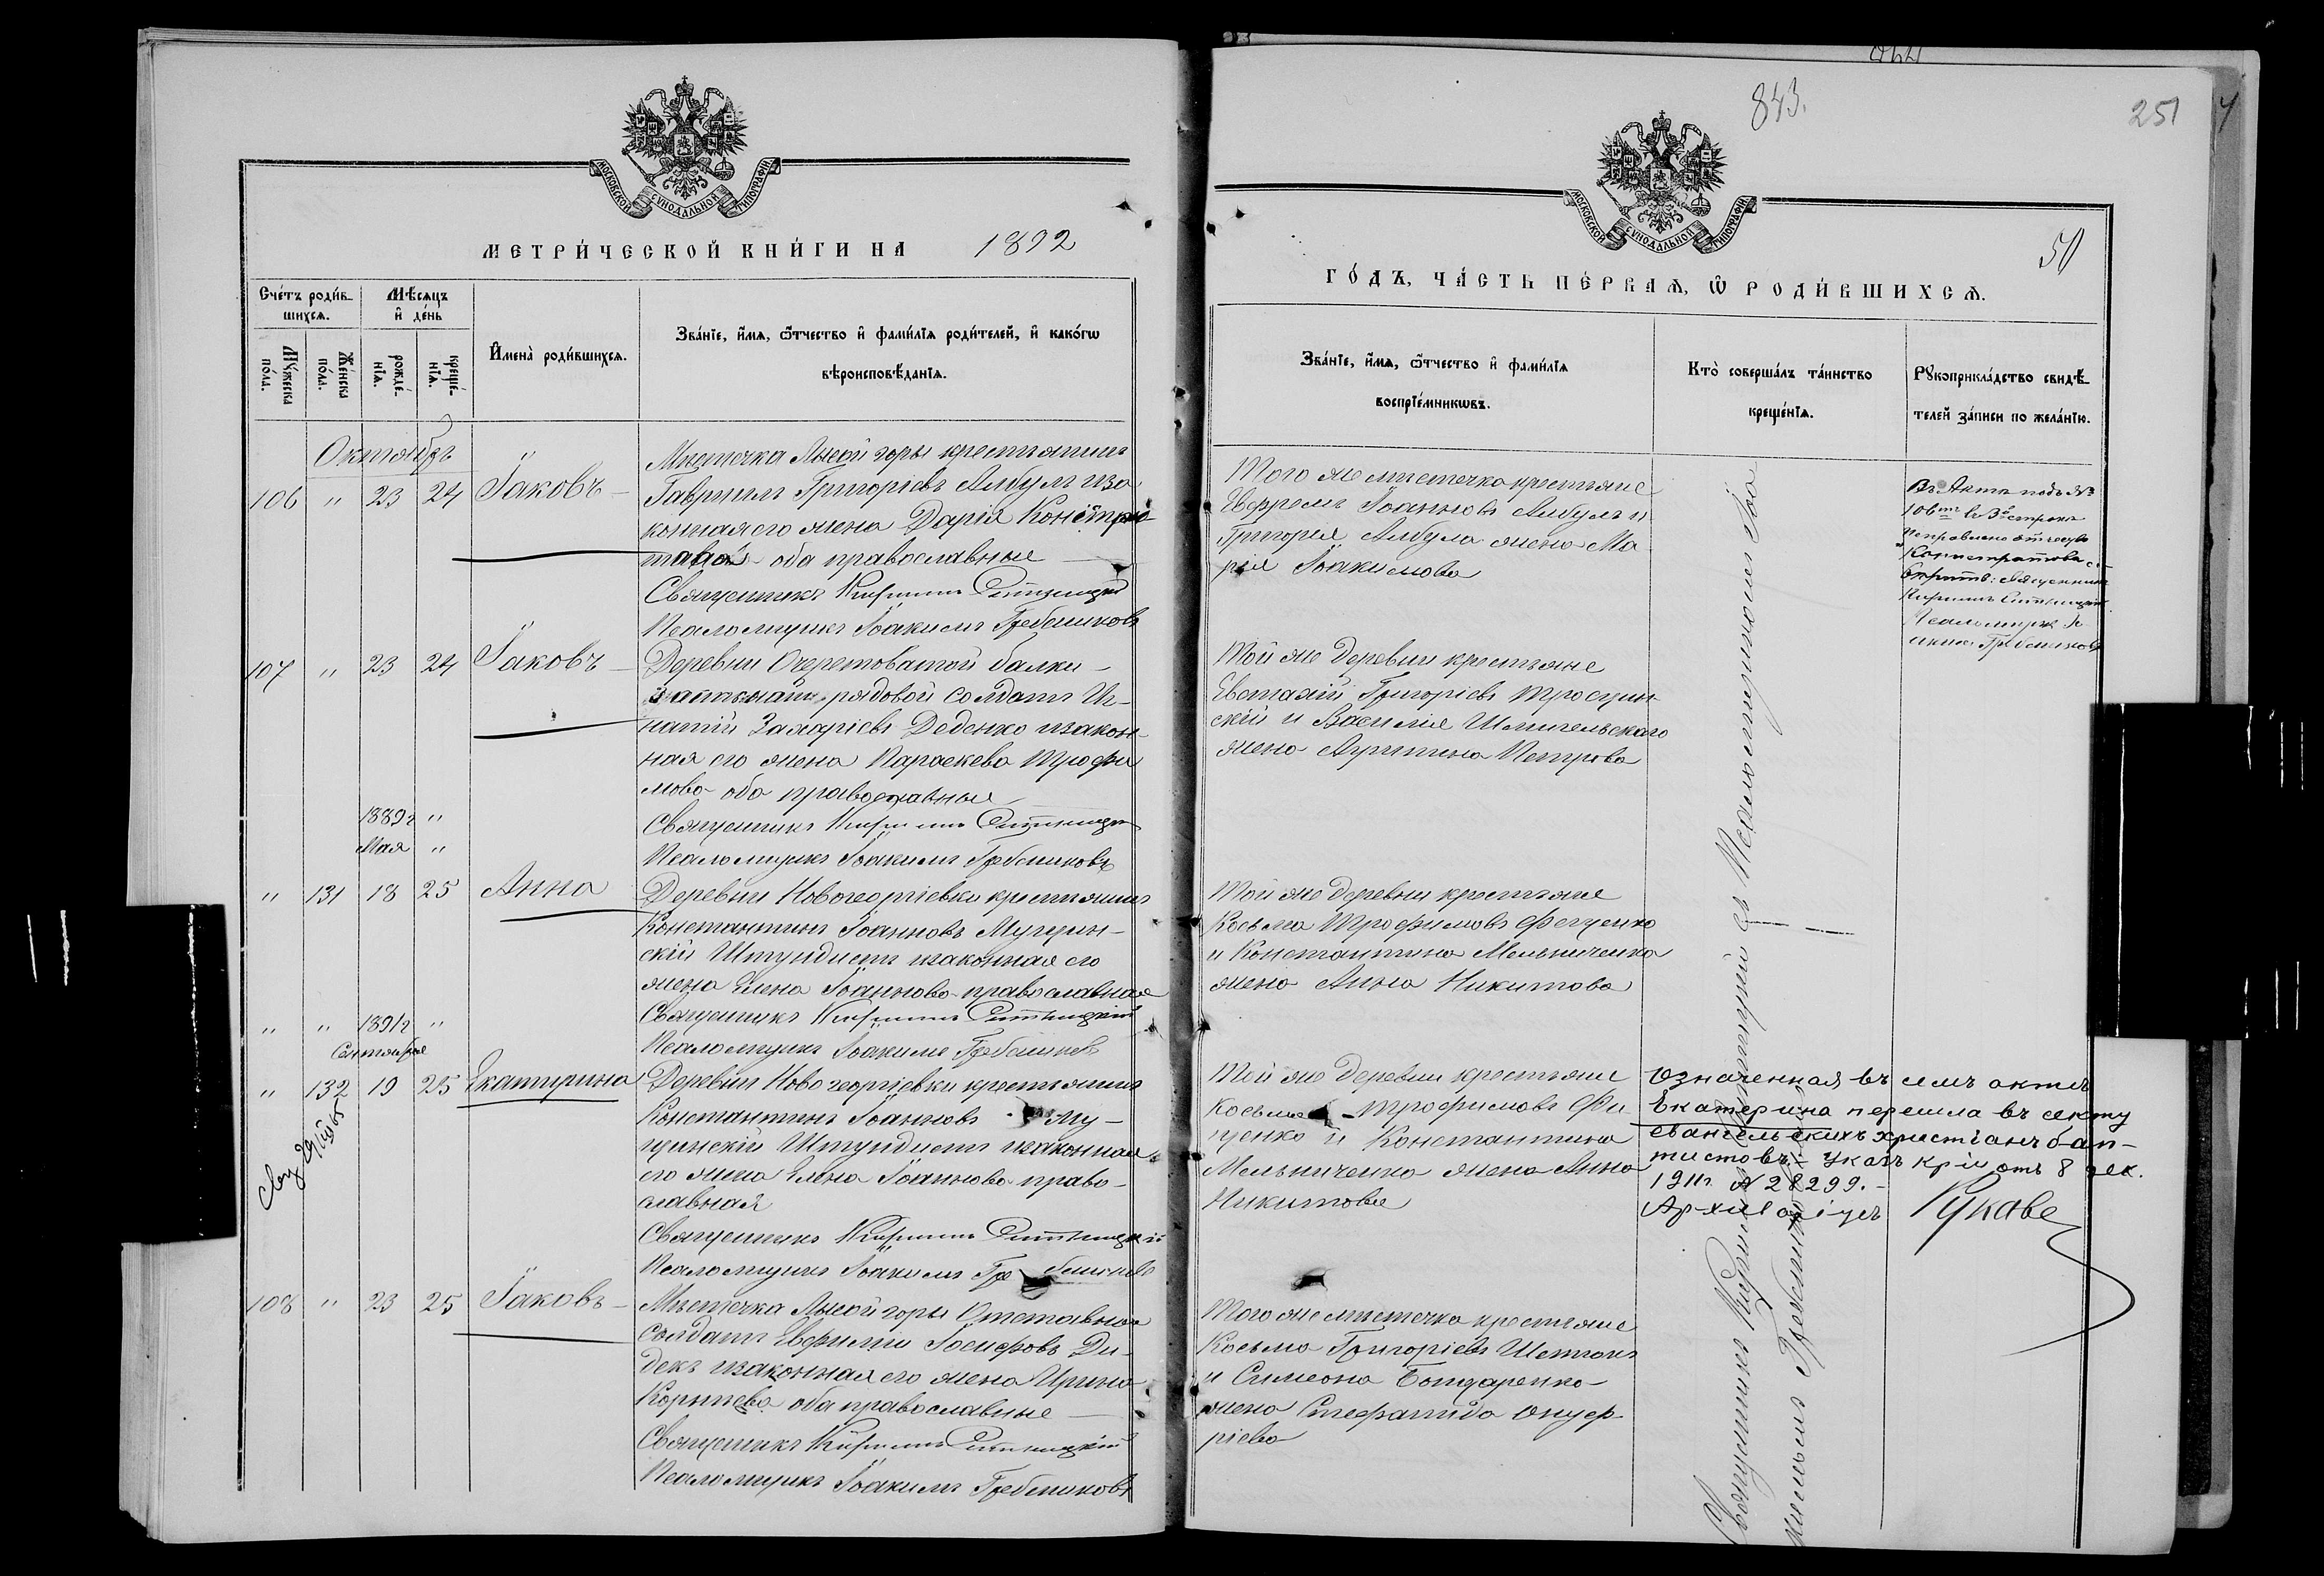 МОСКОВСКОЙ СУНОДАЛЬНОЙ ТИПОГРАФІИ
МЕТРИ́ЧЕСКОЙ КНИ́ГИ НА 1892
Сче́тъ роди́в-
шихсѧ.
Мѣ́сѧцъ
и҆ де́нь
Мꙋ́жеска
по́ла.
Же́нска
по́ла.
рожде́-
нїѧ.
креще́-
нїѧ.
И҆мена̀ роди́вшихсѧ.
Зва́нїе, и҆́мѧ, ѻ҆́тчество и҆ фами́лїѧ роди́телей, и҆ како́гѡ
вѣроисповѣ́данїѧ.
Октябрь
106 " 23 24 Іаковъ
Мѣстечка Лысой горы крестьянинъ
Гавріилъ Григоріевъ Албулъ и за
конная его жена Дарія
оба православные
Священникъ Кириллъ
Псаломщикъ Іоакимъ Гребенниковъ
107 " 23 24 Іаковъ
Деревни Очеретоватой балки
рядовой солдатъ Иг-
натій Захаріевъ Деденко и закон-
ная его жена Параскева Трофи
мова оба православные
Священникъ Кириллъ
Псаломщикъ Іоакимъ Гребенниковъ
1889 г "
Мая "
" 131 18 25 Анна
Деревни Новогеоргіевки крестьянинъ
Константинъ Іоанновъ Мущин-
скій Штундистъ и законная его
жена Елена Іоаннова православная
Священникъ Кириллъ
Псаломщикъ Іоакимъ Гребенниковъ
" " 1891 г "
Сентября
" 132 19 25 Екатерина
Деревни Новогеоргіевки крестьянинъ
Константинъ Іоанновъ Му-
щинскій Штундистъ и законная
его жена Елена Іоаннова право-
славная
Священникъ Кириллъ
Псаломщикъ Іоакимъ Гребенниковъ
108 " 23 25 Іаковъ
Мѣстечка Лысой горы Отставной
солдатъ Евфимій Іосифовъ Ди-
декъ и законная его жена Ирина
Корніева оба православные
Священникъ Кириллъ
Псаломщикъ Іоакимъ Гребенниковъ
843.
251
50
МОСКОВСКОЙ СУНОДАЛЬНОЙ ТИПОГРАФІИ
ГО́ДЪ, ЧА́СТЬ ПЕ́РВАѦ, Ѡ҆ РОДИ́ВШИХСѦ.
Зва́нїе, и҆́мѧ, ѻ҆́тчество и҆ фами́лїѧ
воспрїе́мникѡвъ.
Кто̀ соверша́лъ та́инство
креще́нїѧ.
Рꙋкоприкла́дство свидѣ́-
телей за́писи по жела́нїю.
Того же мѣстечка крестьяне
Ефремъ Іоанновъ Албулъ и
Григорія Албула жена Ма
рія Іоакимова
Въ Актѣ подъ №
106 въ 3 строкѣ
исправлено
Священникъ
Кириллъ
Псаломщикъ Іо
акимъ Гребенниковъ
Той же деревни крестьяне
Евстафій Григоріевъ Тросцин-
скій и Василія Шмигельскаго
жена Агрипина Петрова
Той же деревни крестьяне
Косьма Трофимовъ Фещенко
и Константина Мельниченка
жена Анна Никитова
Той же деревни крестьяне
Косьма Трофимовъ Фе
щенко и Константина
Мельниченка жена Анна
Никитова
Означенная въ семъ актѣ
Екатерина перешла въ секту
евангельскихъ христіанъ бап-
тистовъ. Указъ кріи отъ 8 дек.
1911 г. № 28299.
Архиваріусъ
Того же мѣстечка крестьяне
Косьма Григоріевъ
и Симеона Бондаренко
жена Стефанида Онуф-
ріева
Священникъ Кириллъ съ Псаломщикомъ Іоа
кимомъ Гребенниковымъ